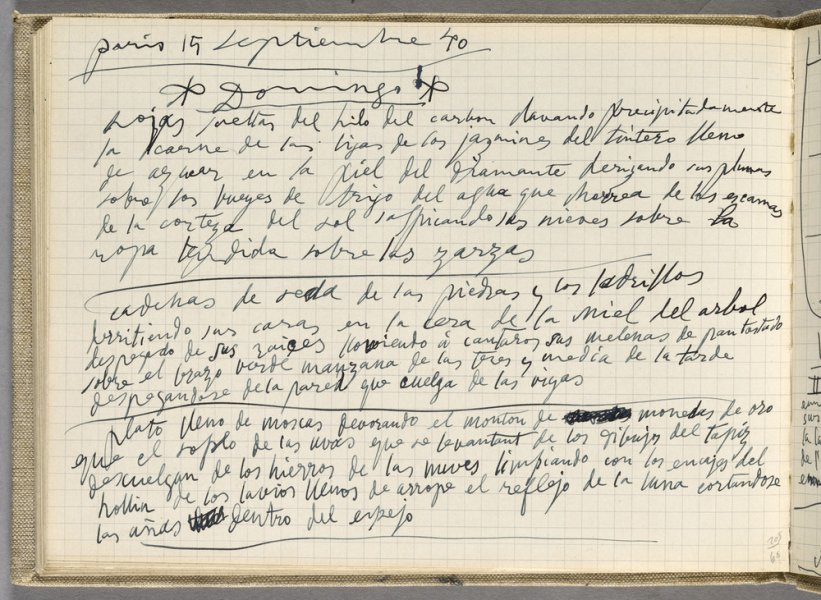 paris 15 septiembre 40
* Domingo *
hojas sueltas del hilo del carbon clavando precipitadamente
la carne de las lijas de los jazmines del tintero lleno
de azucar en la piel del diamante derizando sus plumas
sobre los bueyes de trigo del agua que chorrea de las escamas
de la corteza del sol salpicando sus nieves sobre la
ropa tendida sobre las zarzas
cadenas de seda de las piedras y los ladrillos
derritiendo sus caras en la cera de la miel del arbol
despegado de sus raices lloviendo a cantaros sus melenas de pan tostado
sobre el brazo verde manzana de las tres y media de la tarde
despegandose de la pared que cuelga de las vigas
plato lleno de moscas devorando el monton de monedas de oro
que el soplo de las uvas que se levantant de los dibujos del tapiz
descuelgan de los hierros de las nuves limpiando con los encajes del
hollin de los lavios llenos de arrope el reflejo de la luna cortandose
las uñas dentro del espejo